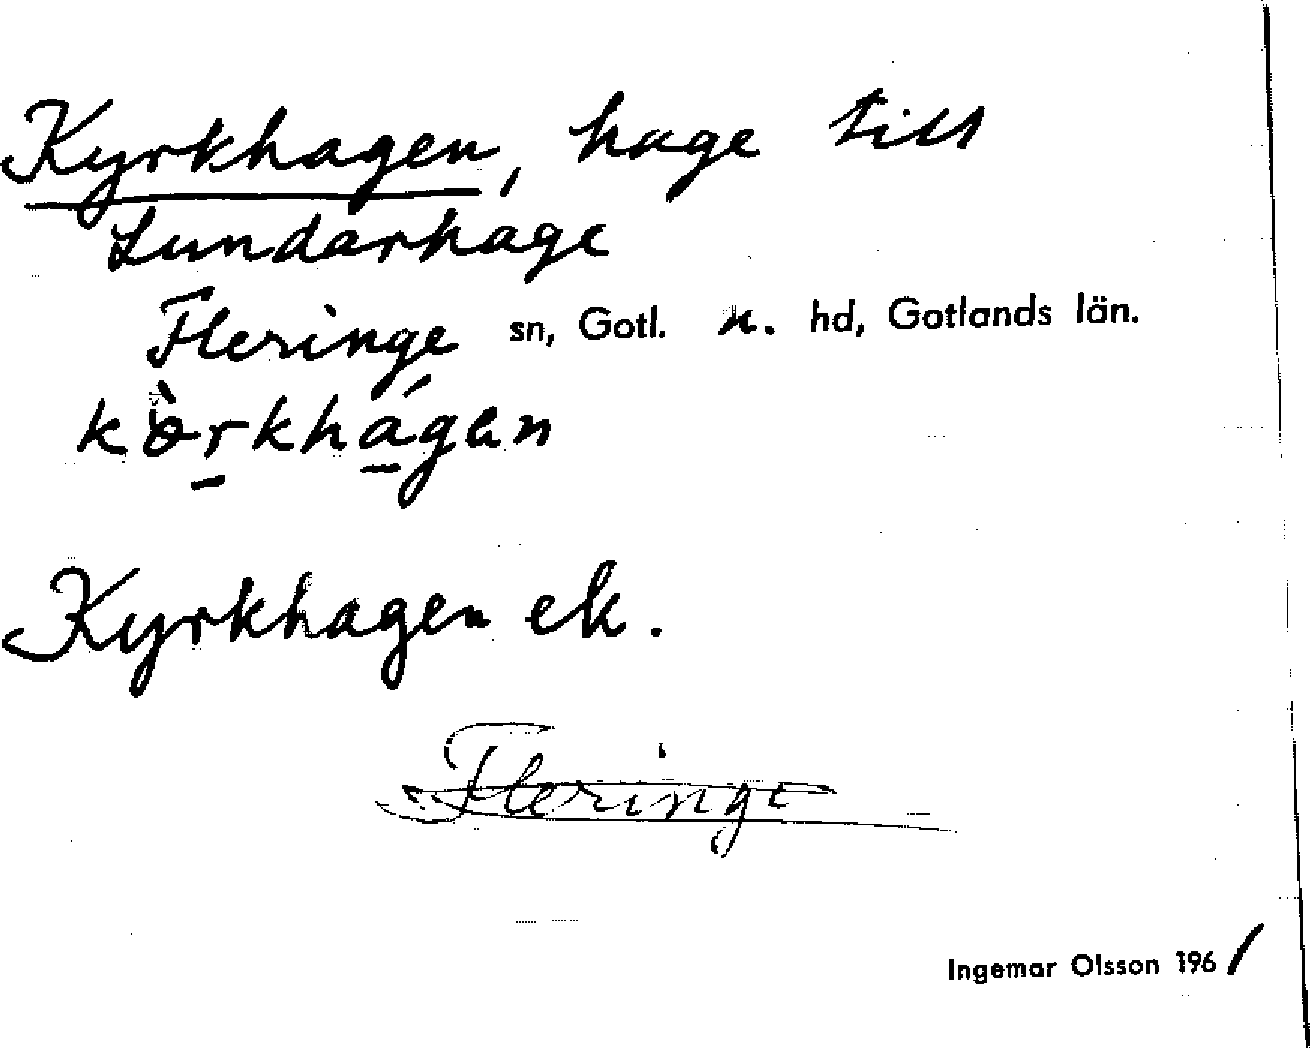 Kyrkhagen, hage till
Lundarhage
Fleringe sn, Gotl. n. hd, Gotlands län.
kò̵rkhágan
Kyrkhagen ek.
Fleringe
Ingemar Olsson 1961